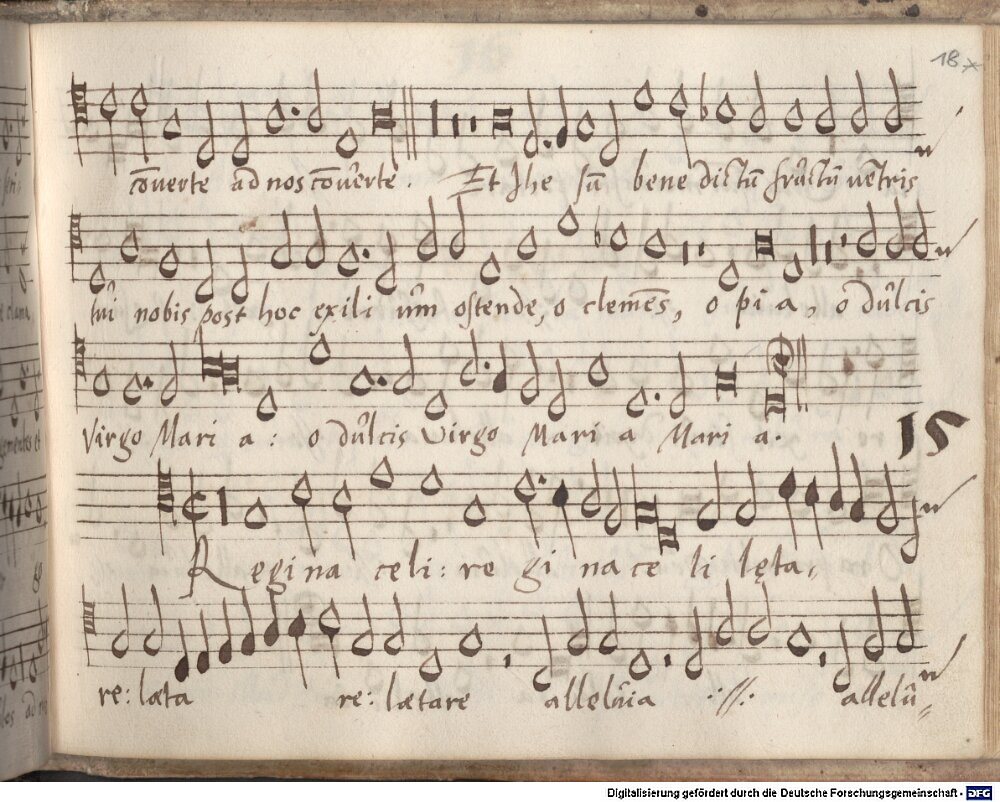 18x
cōuerte ad nos cōuerte. Et Jhe sū bene dictū frūctū vētris
tui nobis post hoc exili ūm ostende, o clemēs, o pi a, o dūlcis
Virgo Mari a: o dūlcis Virgo Mari a Mari a.
15
Regina celi: re gi na ce li lęta,
re: læta re: lætare allelūia ://: allelū=
Digitalisierung gefördert durch die Deutsche Forschungsgemeinschaft - DFG